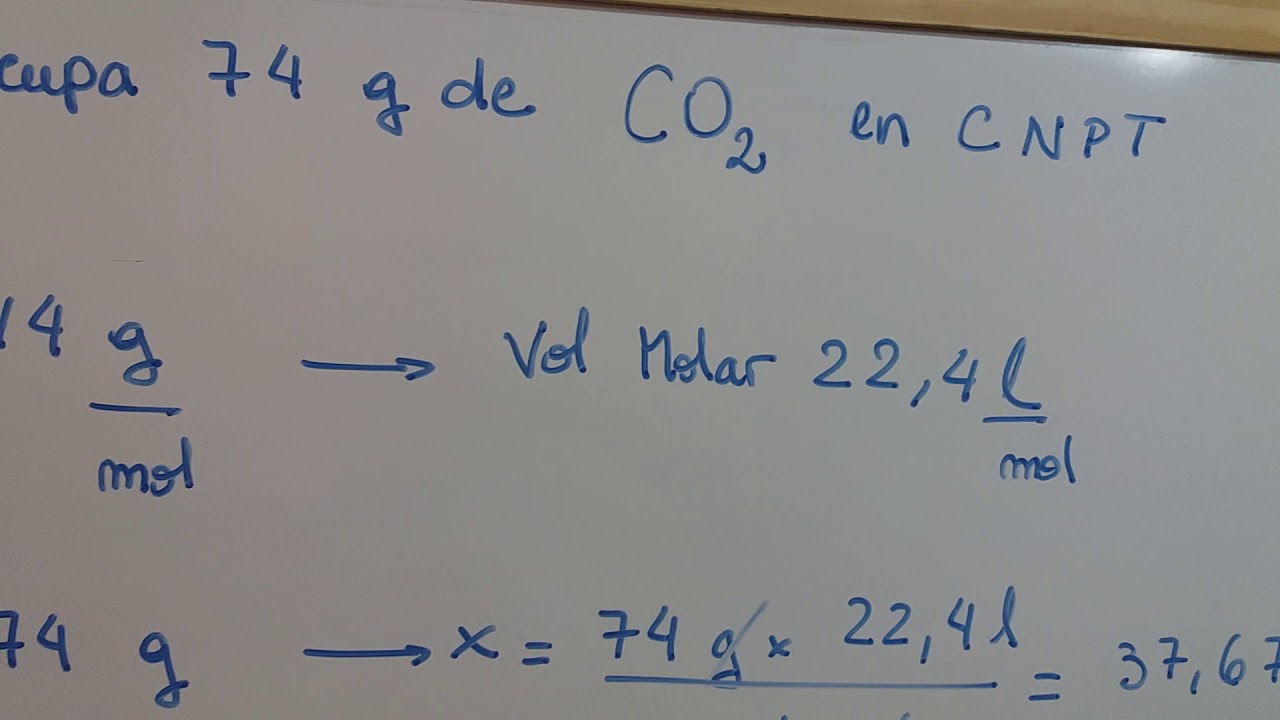 cupa 74 g de CO₂ en CNPT
4 g → Vol Molar 22,4 l
mol mol
74 g → x = 74 g x 22,4 l = 37,67